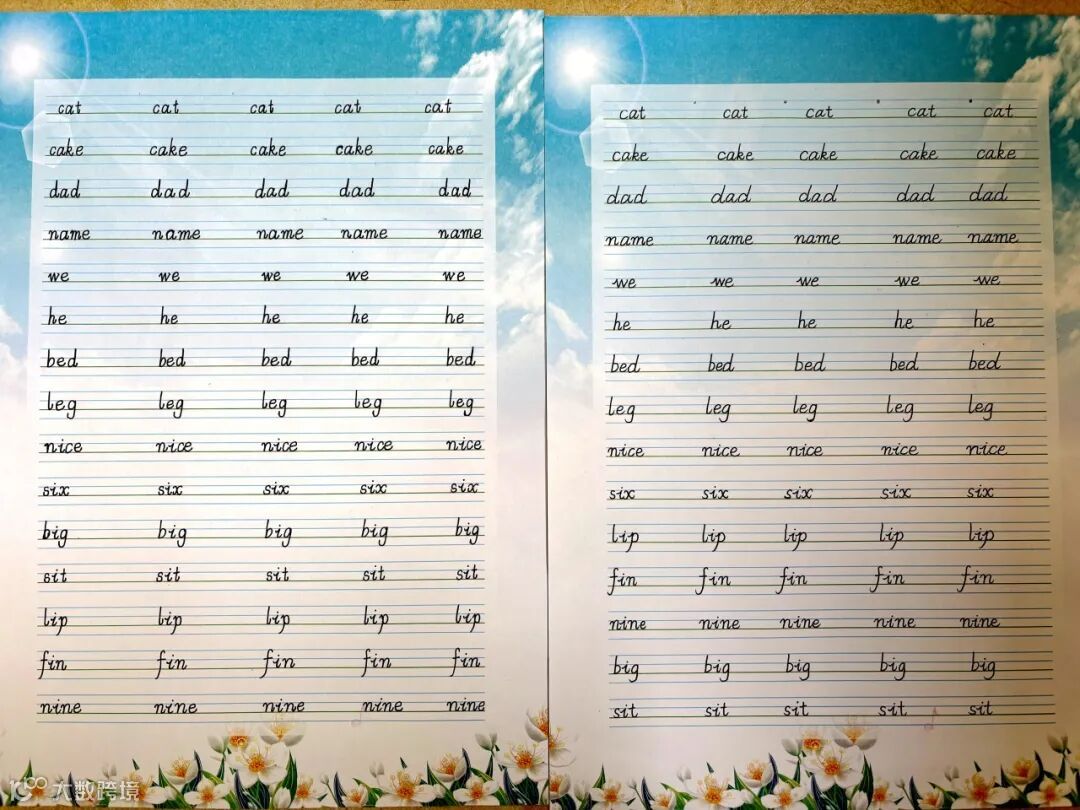 cat cat cat cat cat
cake cake cake cake cake
dad dad dad dad dad
name name name name name
we we we we we
he he he he he
bed bed bed bed bed
leg leg leg leg leg
nice nice nice nice nice
six six six six six
big big big big big
sit sit sit sit sit
lip lip lip lip lip
fin fin fin fin fin
nine nine nine nine nine
cat cat cat cat cat
cake cake cake cake cake
dad dad dad dad dad
name name name name name
we we we we we
he he he he he
bed bed bed bed bed
leg leg leg leg leg
nice nice nice nice nice
six six six six six
lip lip lip lip lip
fin fin fin fin fin
nine nine nine nine nine
big big big big big
sit sit sit sit sit
大数跨境